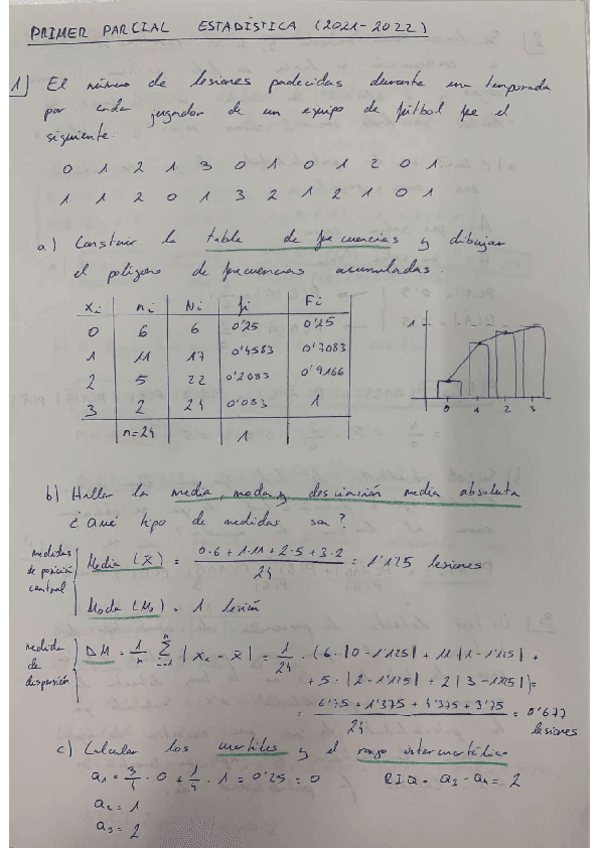 PRIMER PARCIAL ESTADÍSTICA (2021-2022)
1] El número de lesiones padecidas durante una temporada
por cada jugador de un equipo de fútbol fue el
siguiente:
0 1 2 1 3 0 1 0 1 2 0 1
1 1 2 0 1 3 2 1 2 1 0 1
a) Construir la tabla de frecuencias y dibujar
el polígono de frecuencias acumuladas.
xi ni Ni fi Fi
0 6 6 0'25 0'25
1 11 17 0'4583 0'7083
2 5 22 0'2083 0'9166
3 2 24 0'083 1
n=24 1
1
0 1 2 3
b) Hallar la media, moda y desviación media absoluta
¿Qué tipo de medidas son?
medidas de posición central
Media (x̄) = (0·6 + 1·11 + 2·5 + 3·2) / 24 = 1'125 lesiones
Moda (Mo) = 1 lesión
medida de dispersión
DM = 1/n Σ(i=1, n) |xi - x̄| = 1/24 · (6·|0-1'125| + 11|1-1'125| +
+ 5·|2-1'125| + 2|3-1'125|) =
= (6'75 + 1'375 + 4'375 + 3'75) / 24 = 0'677
lesiones
c) Calcular los cuartiles y el rango intercuartílico
a1 = 3/4 · 0 + 1/4 · 1 = 0'25 = 0 RIQ = a3 - a1 = 2
a2 = 1
a3 = 2